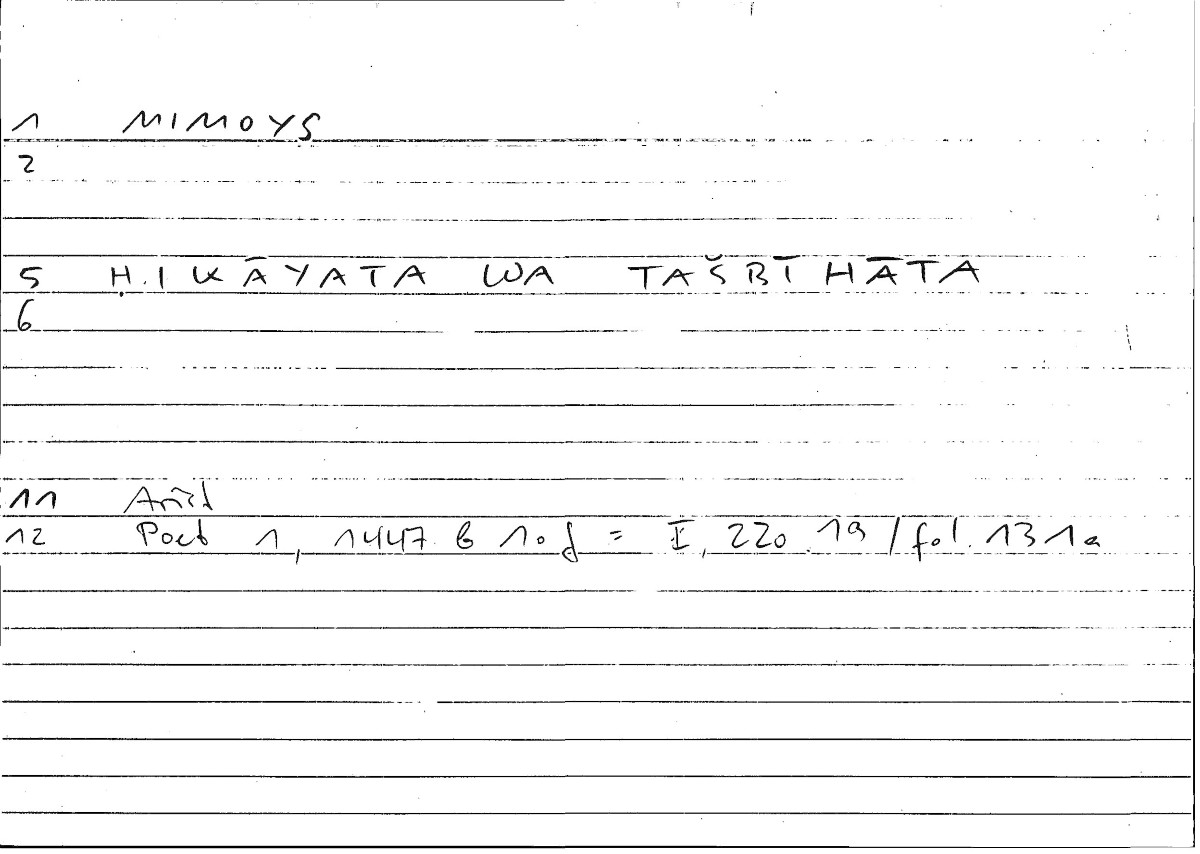 1 MIMOYS
2
5 ḤIKĀYATA WA TAŠBĪHĀTA
6
11 Arist
12 Poet 1, 1447 b 10 f = I, 220.19 / fol. 131a